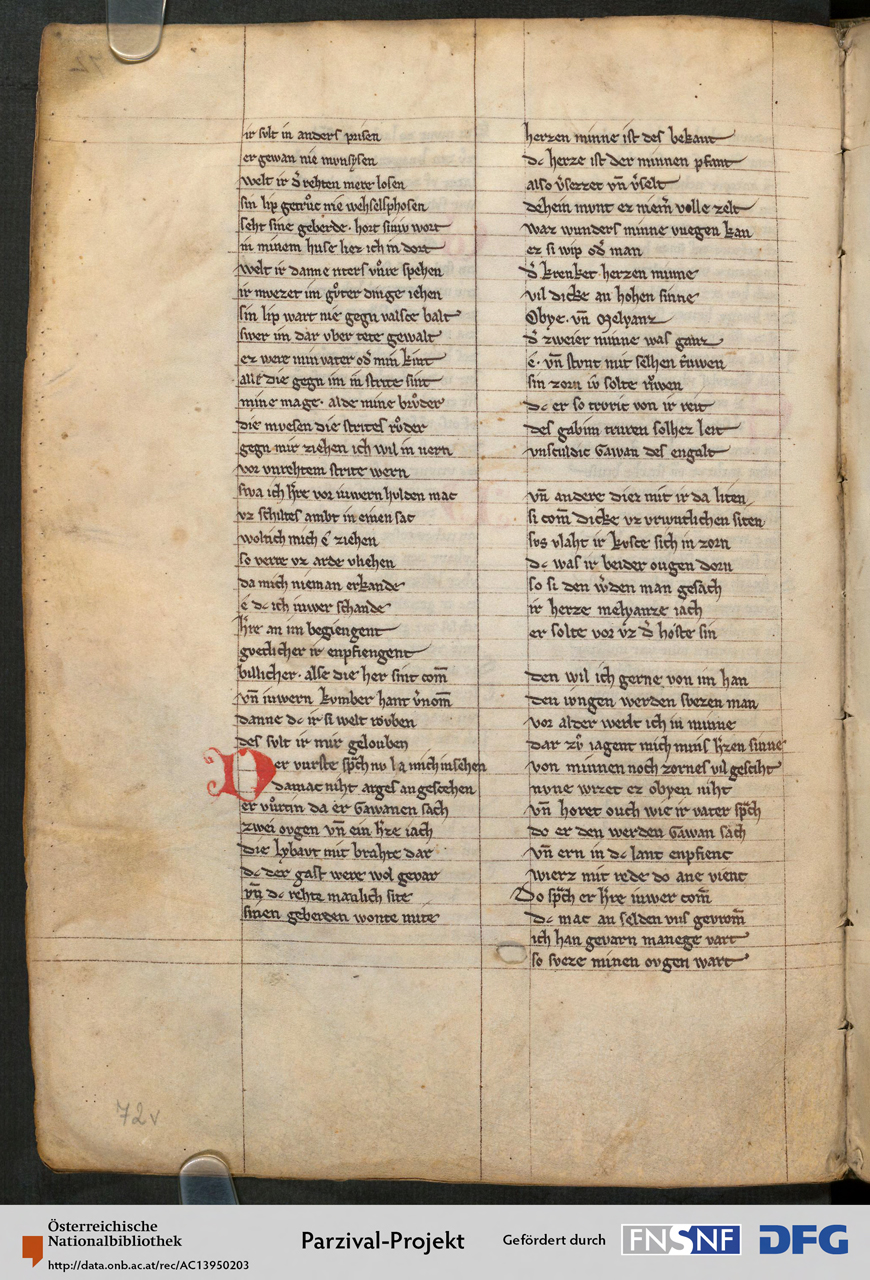 ir svlt in anders prisen
er gewan nie mvnysen
welt ir d̾ rehten mere losen
sin lip getrůc nie wehselphosen
seht sine geberde · hort siniv wort
in minem huse liez ich in dort
welt ir danne riters vůre spehen
ir mvezet im gůter dinge iehen
sin lip wart nie gegn valsce balt
swer im dar vber tete gewalt
ez were min vater od̾ min kint
alle die gegn im in strite sint
mine mage · alde mine brůder
die mvesen die strites růder
gegn mir ziehen ich wil in nern
vor vnrehtem strite wern
swa ich h̾re vor iuwern hvlden mac
vz schiltes ambt in einen sac
woltich mich ê ziehen
so verre vz arde vliehen
da mich nieman erkande
ê dc ich iuwer schande
h̾re an im begiengent
gvetlicher ir enpfiengent
billicher · alse die her sint com̄
vn̄ iuwern kvmber hant v̾nom̄
danne dc ir si welt rǒuben
des svlt ir mir gelouben
Der vurste sp̄ch nv la mich in sehen
damac niht arges an gescehen
er vůrtin da er Gawanen sach
zwei ovgen vn̄ ein h̾ze iach
die lybavt mit brahte dar
dc der gast were wol gevar
vn̄ dc rehte manlich site
sinen geberden wonte mite
herzen minne ist des bekant
dc herze ist der minnen pfant
also v̾sezzet vn̄ v̾selt
dehein mvnt ez niem̄ volle zelt
waz wunders minne vuegen kan
ez si wip od̾ man
d̾ krenket herzen minne
vil dicke an hohen sinne
Obye · vn̄ Melyanz
d̾ zweier minne was ganz
ê · vn̄ stvnt mit selhen triuwen
sin zorn iv solte rǐwen
dc er so trvric von ir reit
des gabim truren solhez leit
vnsculdic Gawan des engalt
vn̄ andere die mit ir da liten
si com̄ dicke vz vrivntlichen siten
svs vlaht ir kvsce sich in zorn
dc was ir beider ougen dorn
so si den w̾den man gesach
ir herze melyanze iach
er solte vor vz d̾ hoste sin
den wil ich gerne von im han
den ivngen werden svezen man
vor alder werlt ich in minne
dar zů iagent mich mins h̾zen sinne
von minnen noch zornes vil gesciht
nvne wizet ez obyen niht
vn̄ horet ouch wie ir vater sp̄ch
do er den werden Gawan sach
vn̄ ern in dc lant enpfienc
wierz mit rede do ane vienc
Do sp̄ch er h̾re iuwer com̄
dc mac an selden vns gevrom̄
ich han gevarn manege vart
so sveze minen ovgen wart
72v
Österreichische
Nationalbibliothek
http://data.onb.ac.at/rec/AC13950203
Parzival-Projekt
Gefördert durch
FNSNF
DFG